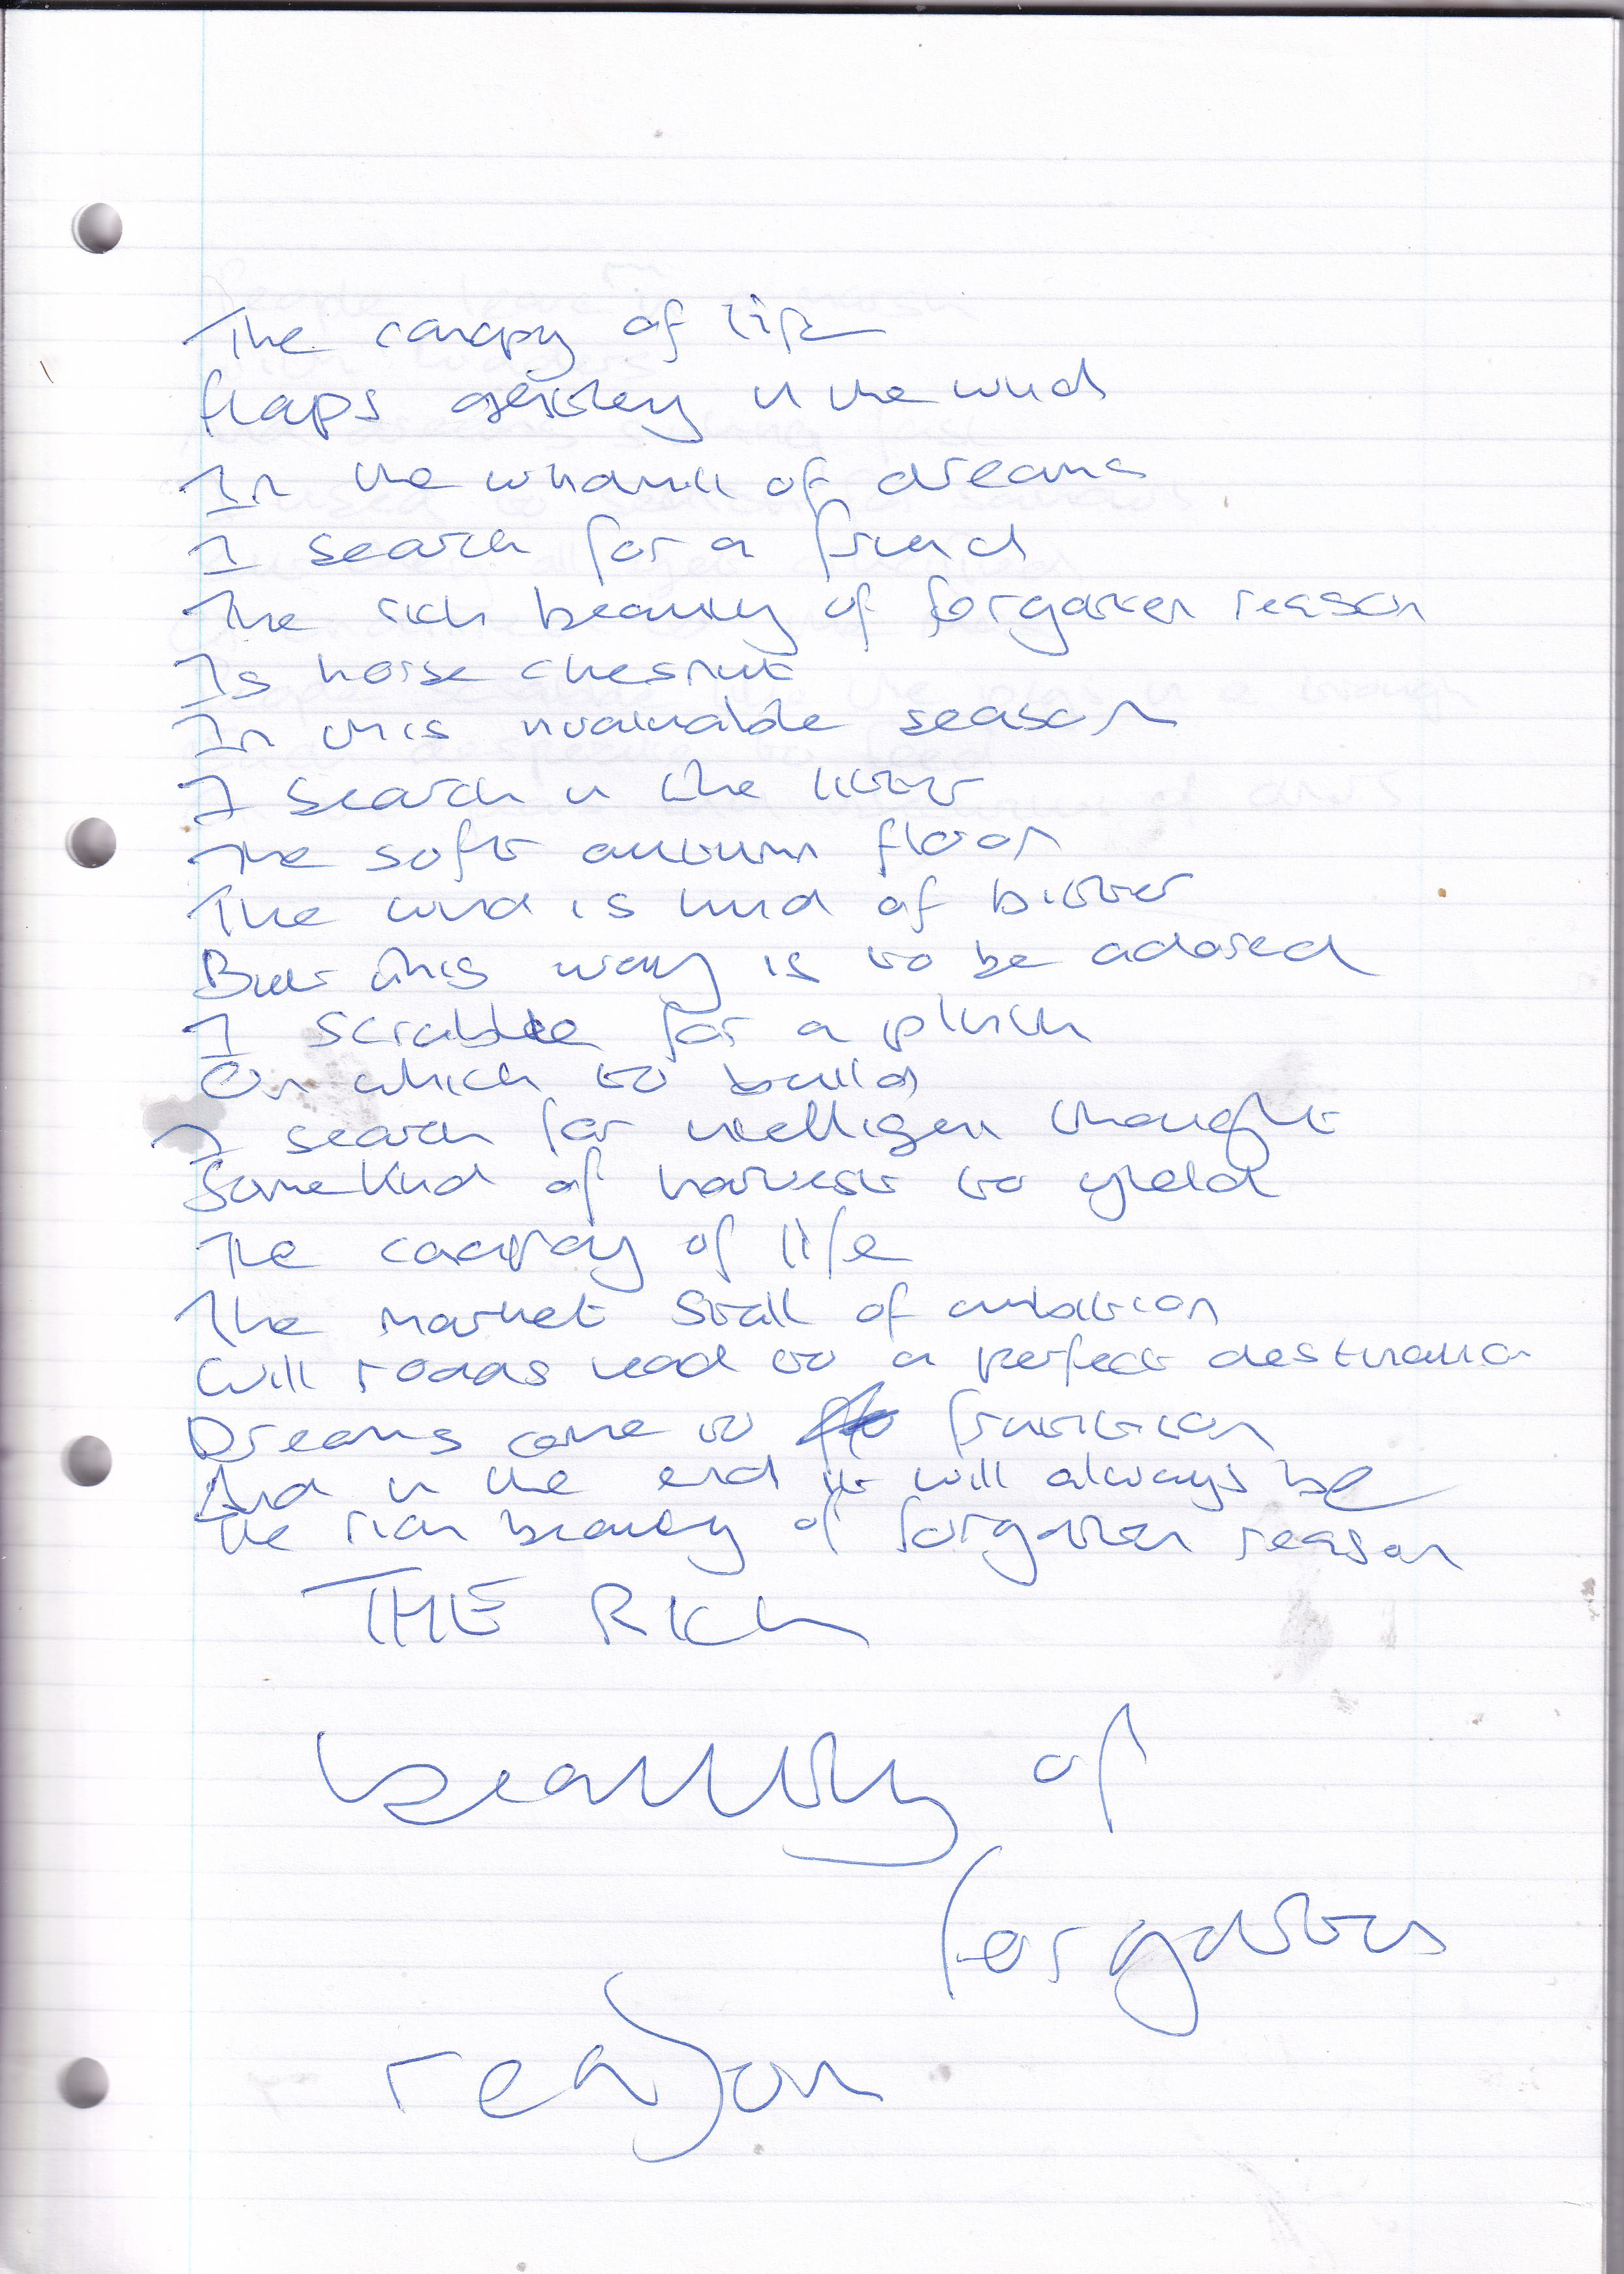 The canopy of life
flaps in the wind
In the windmill of dreams
I search for a friend
The rich beauty of forgotten reason
Is horse chesnut
In this invaluable season
I search in the litter
The soft autumn floor
The wind is kind of bitter
But this way is to be adored
I scrabble for a plinth
On which to build
I search for intelligent thought
Some kind of harvest to yield
The canopy of life
The market stall of ambition
Will roads lead to a perfect destination
Dreams come to fruitition
And in the end it will always be
the rich beauty of forgotten reason
THE RICh
beauty of
forgotten
reason